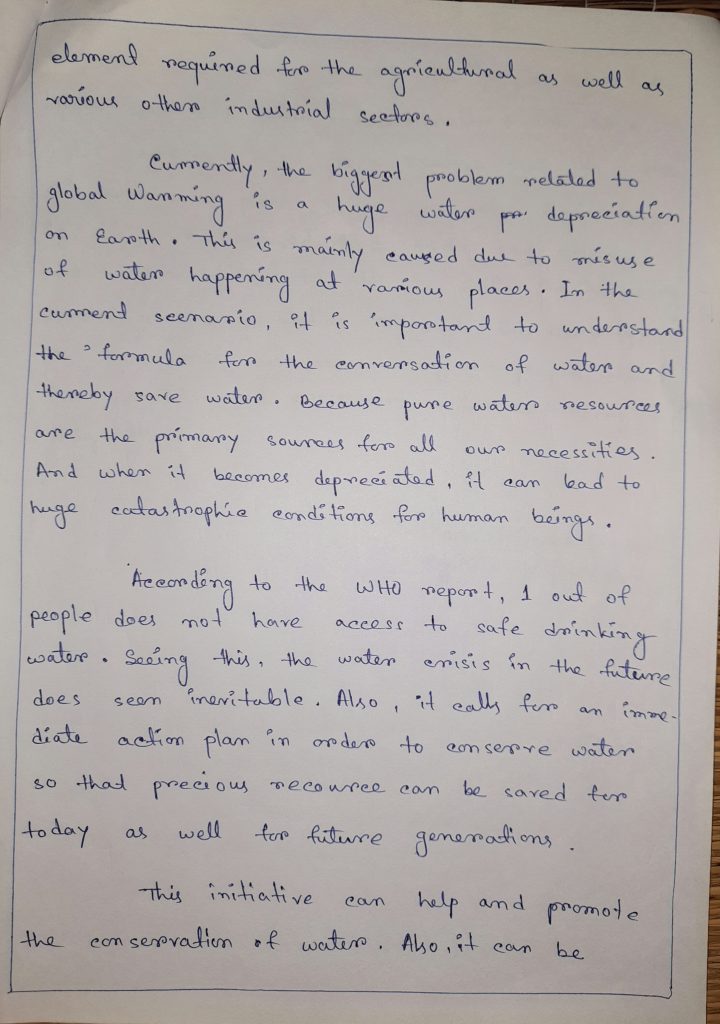 element required for the agricultural as well as
various other industrial sectors.
Currently, the biggest problem related to
global Warming is a huge water depreciation
on Earth. This is mainly caused due to misuse
of water happening at various places. In the
current scenario, it is important to understand
the formula for the conversation of water and
thereby save water. Because pure water resources
are the primary sources for all our necessities.
And when it becomes depreciated, it can lead to
huge catastrophic conditions for human beings.
According to the WHO report, 1 out of
people does not have access to safe drinking
water. Seeing this, the water crisis in the future
does seen inevitable. Also, it calls for an imme-
diate action plan in order to conserve water
so that precious recource can be saved for
today as well for future generations.
This initiative can help and promote
the conservation of water. Also, it can be